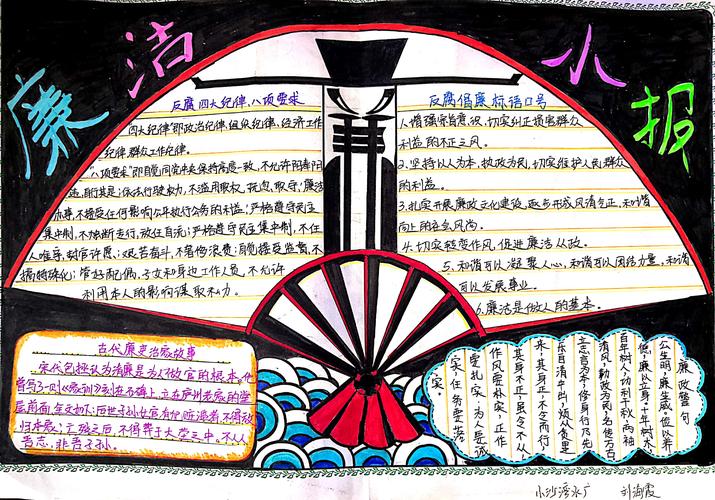 廉洁小报
反腐四大纪律、八项要求
四大纪律"即政治纪律、组织纪律、经济工作
纪律群众工作纪律。
八项要求"即自觉同党中央保持高度一致,不允许阳奉阴
违,自行其是;依法行驶权力,不滥用职权、
办事,不接受任何影响公正执行公务的利益;严格遵守民主
集中制,不独断专行,放任自流;严格遵守民主集中制,不任
人唯亲,封官许愿;艰苦奋斗,不奢侈浪费;自觉接受监督,不
搞特殊化;管好配偶、子女和身边工作人员,不允许
利用本人的影响谋取私力。
反腐倡廉标语口号
1.增强宗旨意识,切实纠正损害群众
利益的不正之风。
2.坚持以人为本,执政为民,切实维护人民群众
的利益。
3.扎实开展廉政文化建设,逐步形成风清气正,和谐
向上的社会风尚。
4.切实转变作风,促进廉洁从政。
5.和谐可以凝聚人心,和谐可以团结力量,和谐
可以发展事业。
6.廉洁是做人的基本。
古代廉吏治家故事
宋代包拯认为清廉是为人做官的根本,他
曾写了一则《家训》刻在石碑上,立在庐州老家的堂
屋前面,全文如下:后世子孙仕官有犯赃滥者,不得放
归本家;亡殁之后,不得葬于大茔之中,不从
吾志,非吾子孙。
廉政警句
公生明,廉生威,俭以养
德,廉以立身,十年树木,
百年树人,功利千秋,两袖
清风,勤政为民,名传万古,
立志言为本,修身行为先,
乐自清中出,烦从贪里
来,其身正,不令而行,
其身不正,虽令不从,
作风要朴实,工作
要扎实,为人要诚
实,任务要落
实。
小沙湾水厂 刘海霞